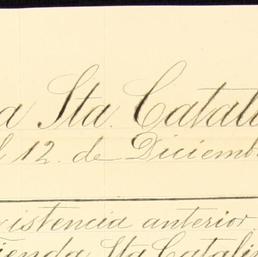 a Sta. Catali
l 12 de Diciemb
xistencia anterior
ienda Sta Catalin